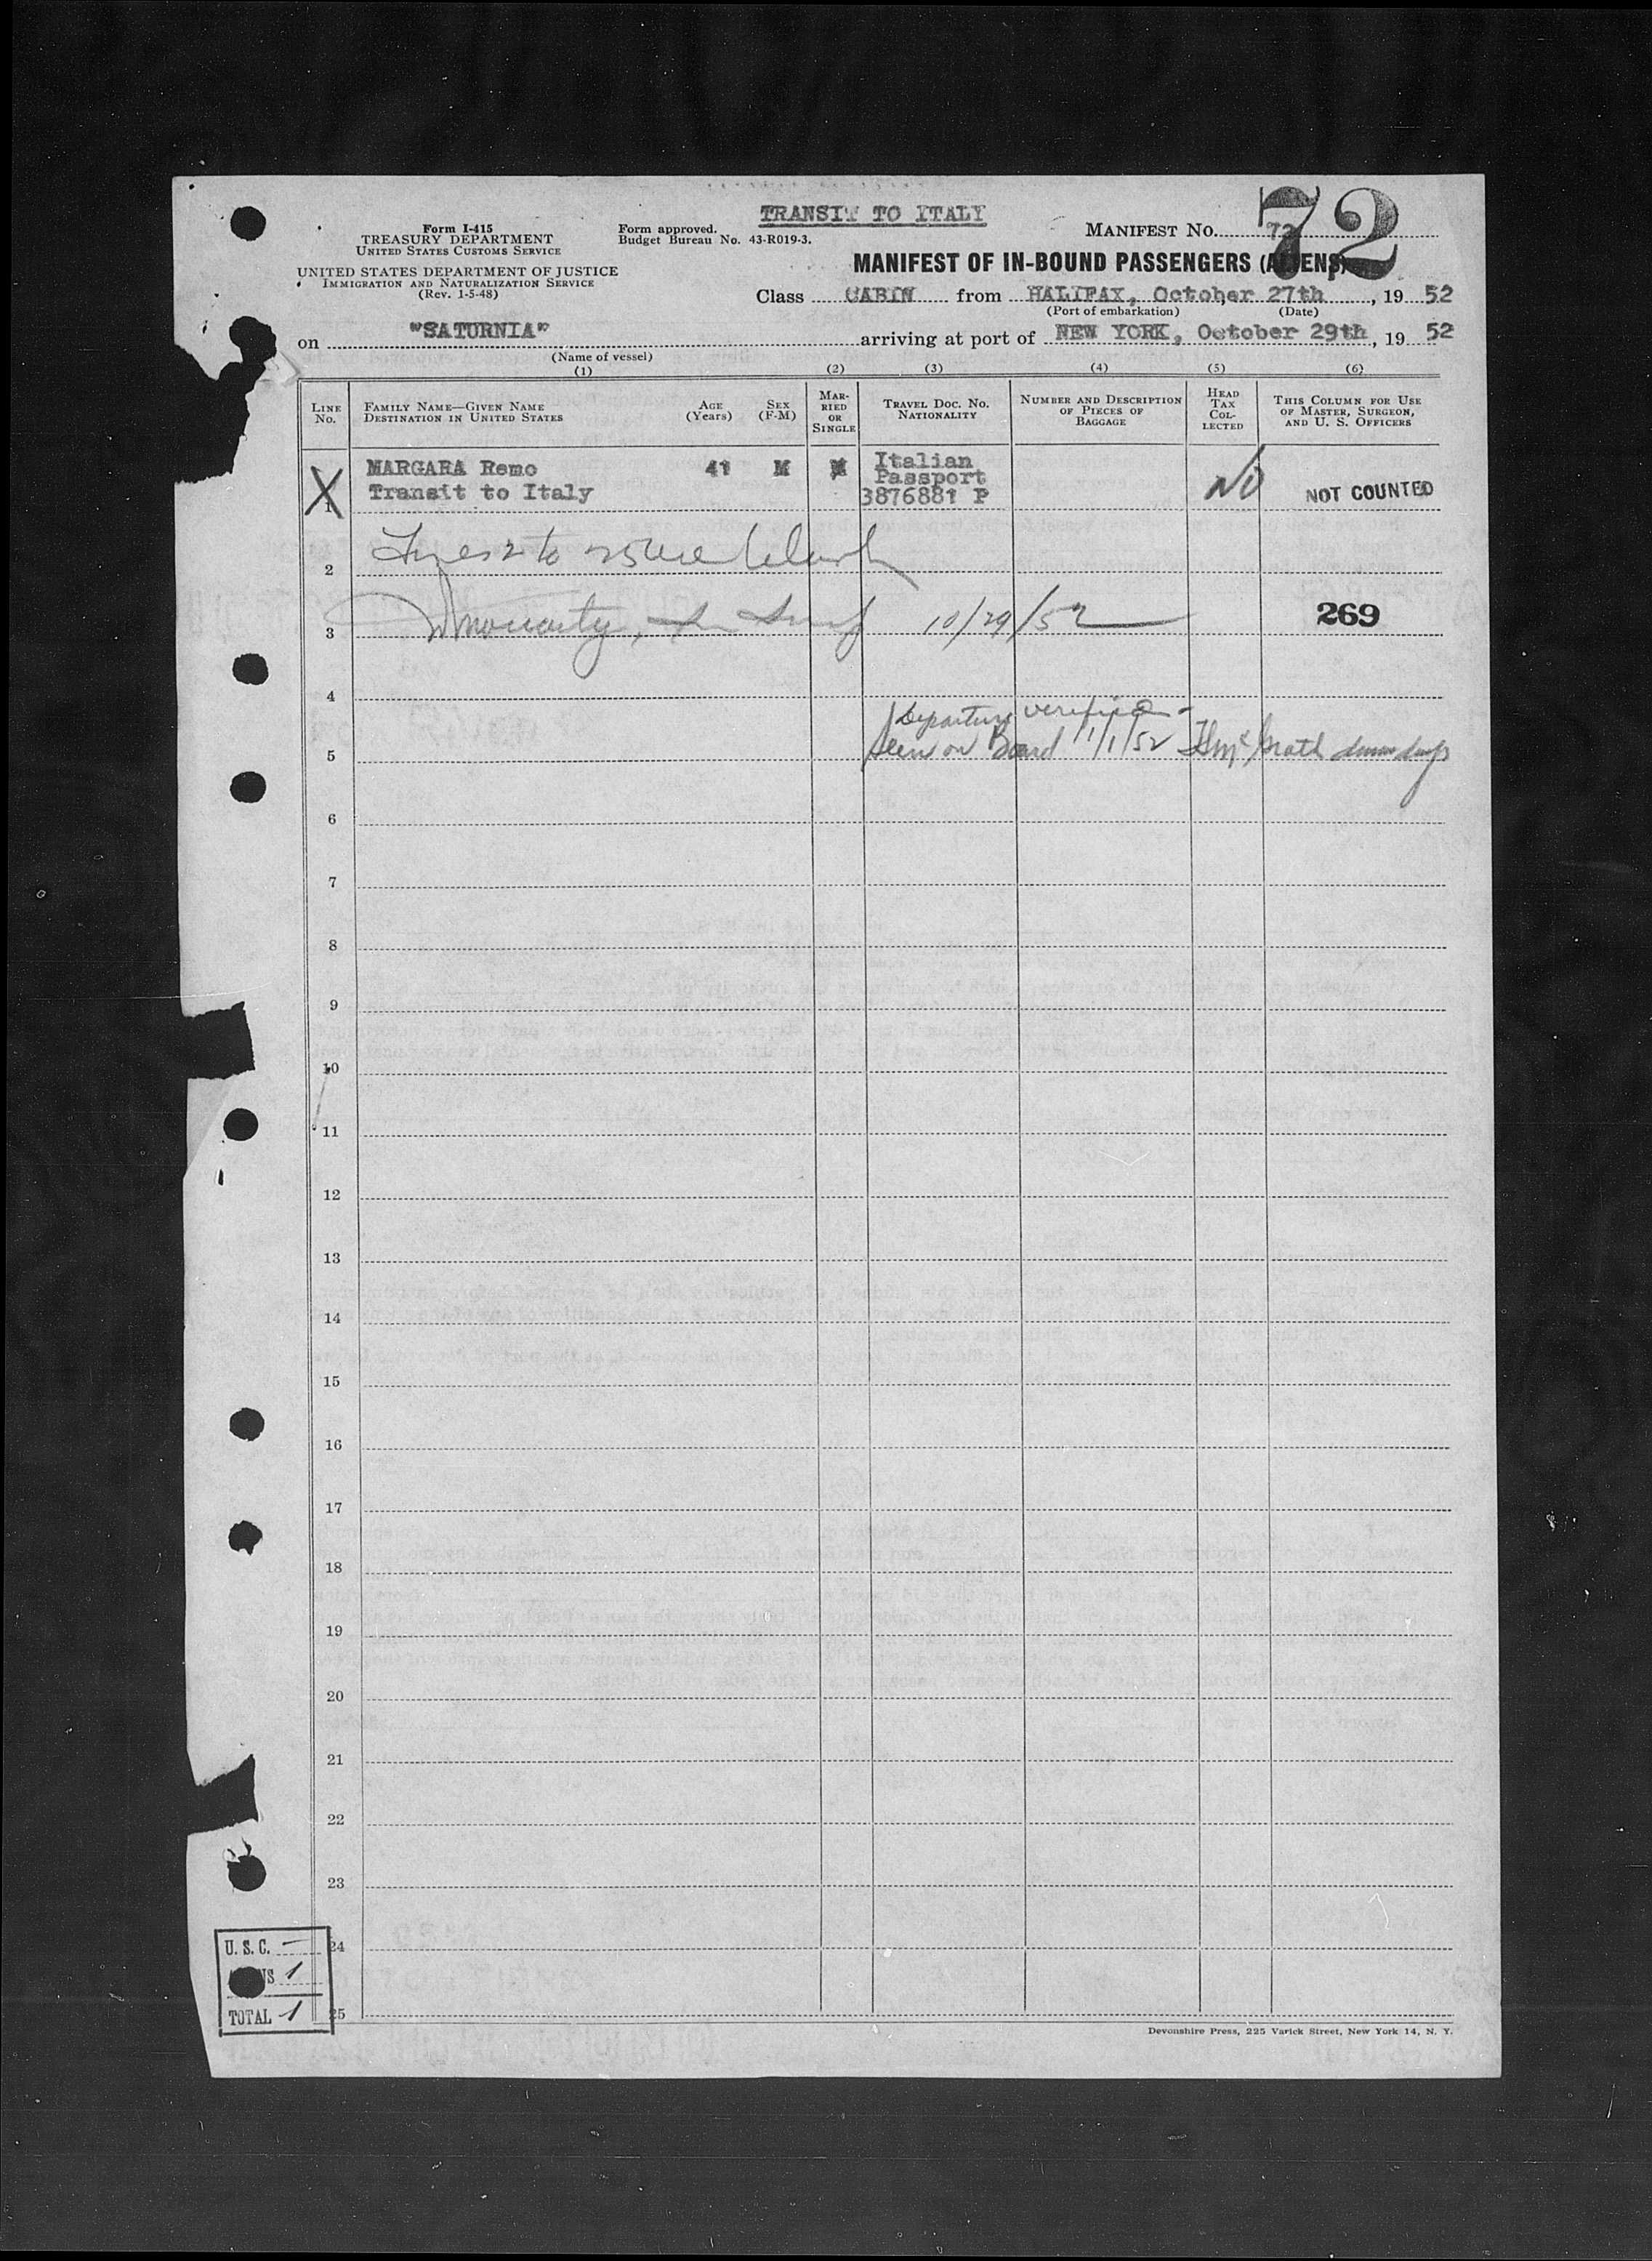 TRANSIT TO ITALY
72
Form I-415
TREASURY DEPARTMENT
UNITED STATES CUSTOMS SERVICE
Form approved.
Budget Bureau No. 43-R019-3.
MANIFEST No. 72
UNITED STATES DEPARTMENT OF JUSTICE
IMMIGRATION AND NATURALIZATION SERVICE
(Rev. 1-5-48)
MANIFEST OF IN-BOUND PASSENGERS (ALIENS)
Class CABIN from HALIFAX, October 27th, 19 52
(Port of embarkation) (Date)
on "SATURNIA" arriving at port of NEW YORK, October 29th, 19 52
(Name of vessel)
(1) (2) (3) (4) (5) (6)
LINE No.
FAMILY NAME—GIVEN NAME
DESTINATION IN UNITED STATES
AGE (Years)
SEX (F-M)
MARRIED OR SINGLE
TRAVEL DOC. NO. NATIONALITY
NUMBER AND DESCRIPTION OF PIECES OF BAGGAGE
HEAD TAX COLLECTED
THIS COLUMN FOR USE OF MASTER, SURGEON, AND U. S. OFFICERS
1 MARGARA Remo 41 M M Italian
Passport
Transit to Italy 3876881 P No NOT COUNTED
2 Lines 2 to 25 are blank
3 Moriarty, 10/29/52 269
4
Departure verified -
5 Seen on Board 11/1/52 H McGrath
6
7
8
9
10
11
12
13
14
15
16
17
18
19
20
21
22
23
24
25
U. S. C. —
ALIENS 1
TOTAL 1
Devonshire Press, 225 Varick Street, New York 14, N. Y.